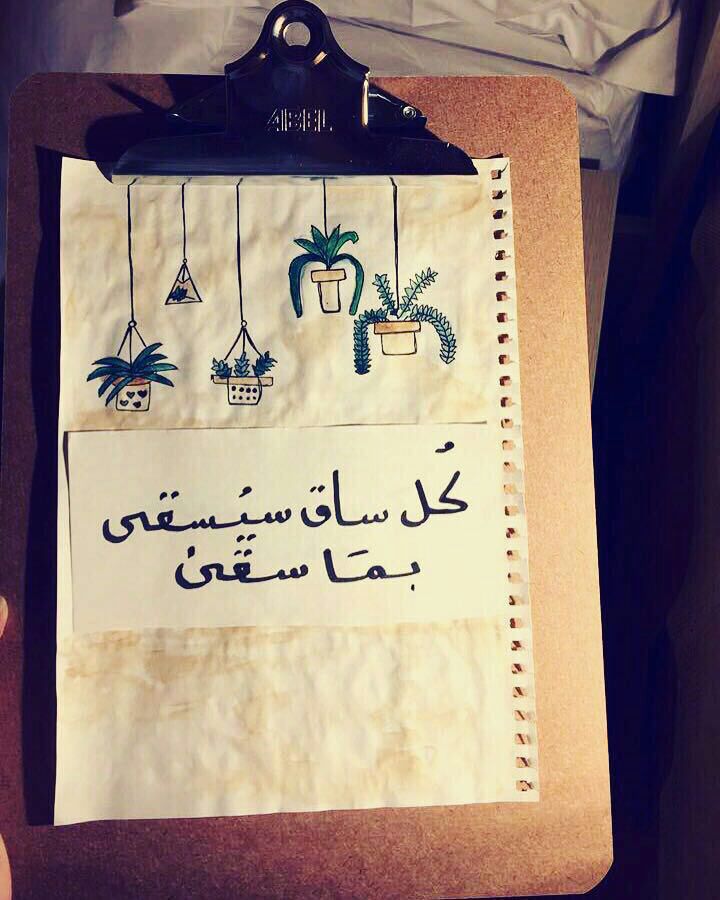 ABEL
كُل ساق سيُسقى
بمَا سقىٰ